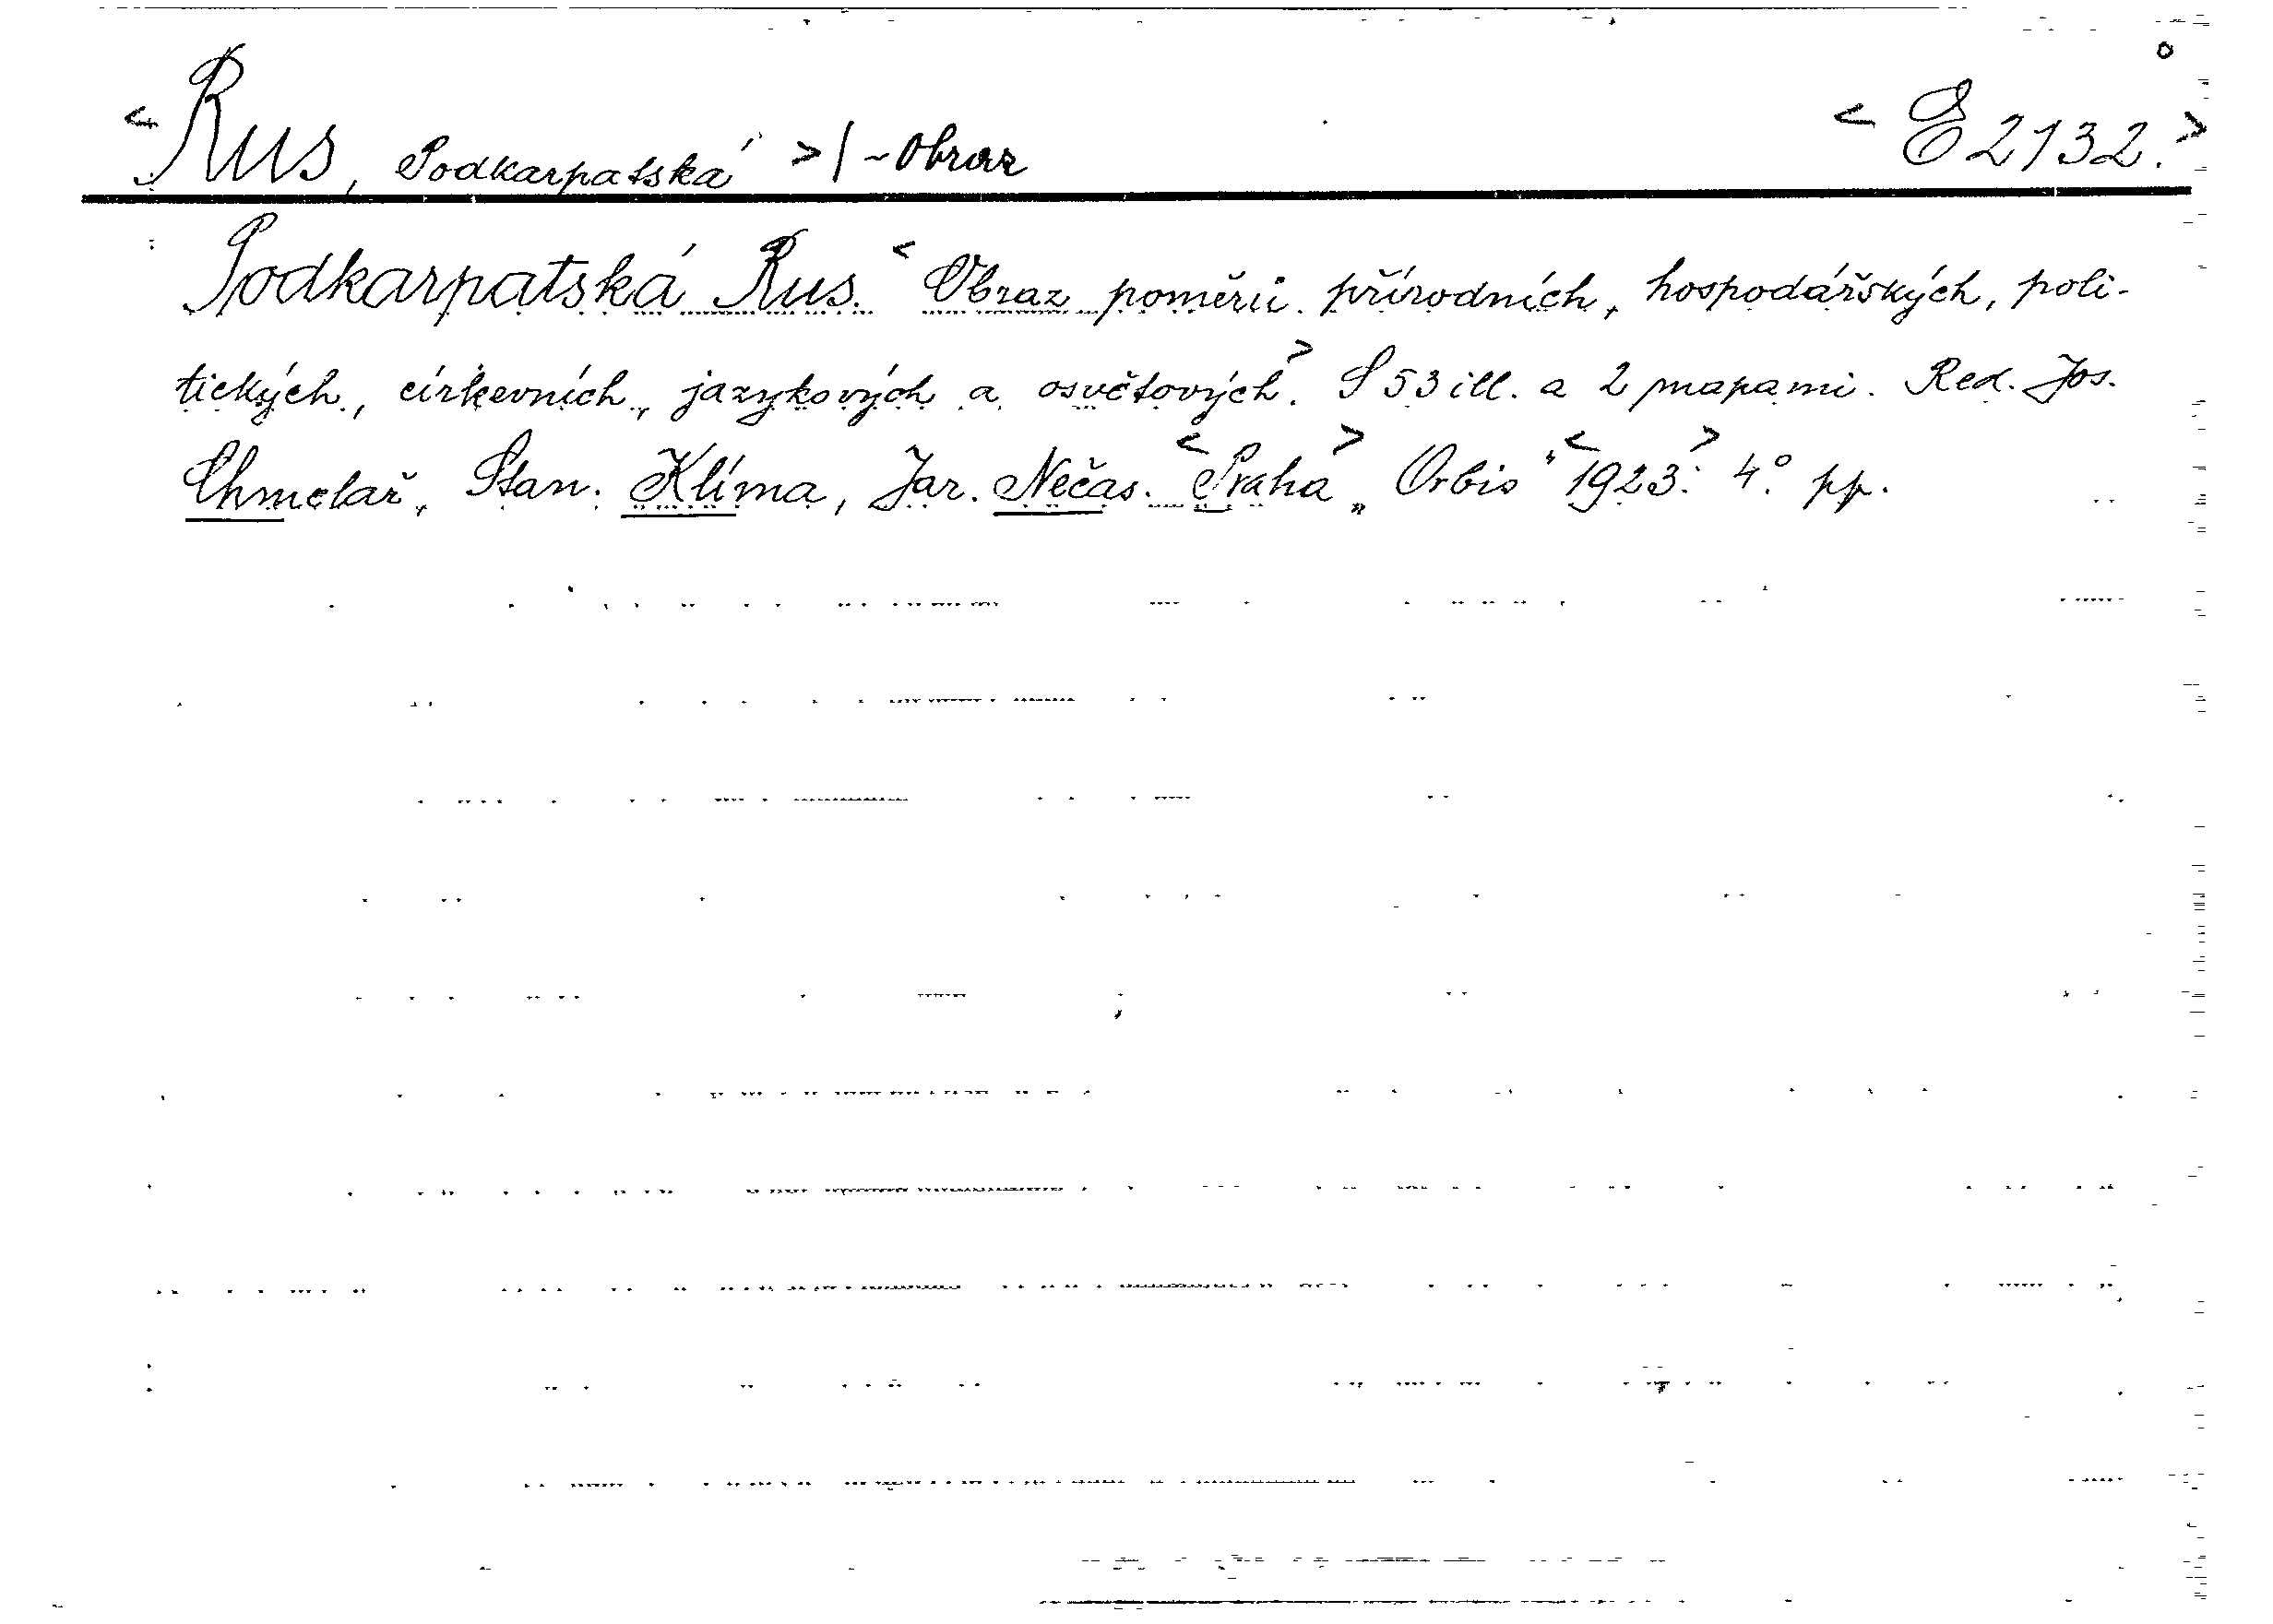 <Rus, Podkarpatská >/~Obraz <E 2132.>
Podkarpatská Rus. <Obraz poměrů přírodních, hospodářských, poli-
tických, církevních, jazykových a osvětových.> S 53 ill. a 2 mapami. Red. Jos.
Chmelař, Stan. Klíma, Jar. Nečas. <Praha> „Orbis“ <1923.> 4° pp.